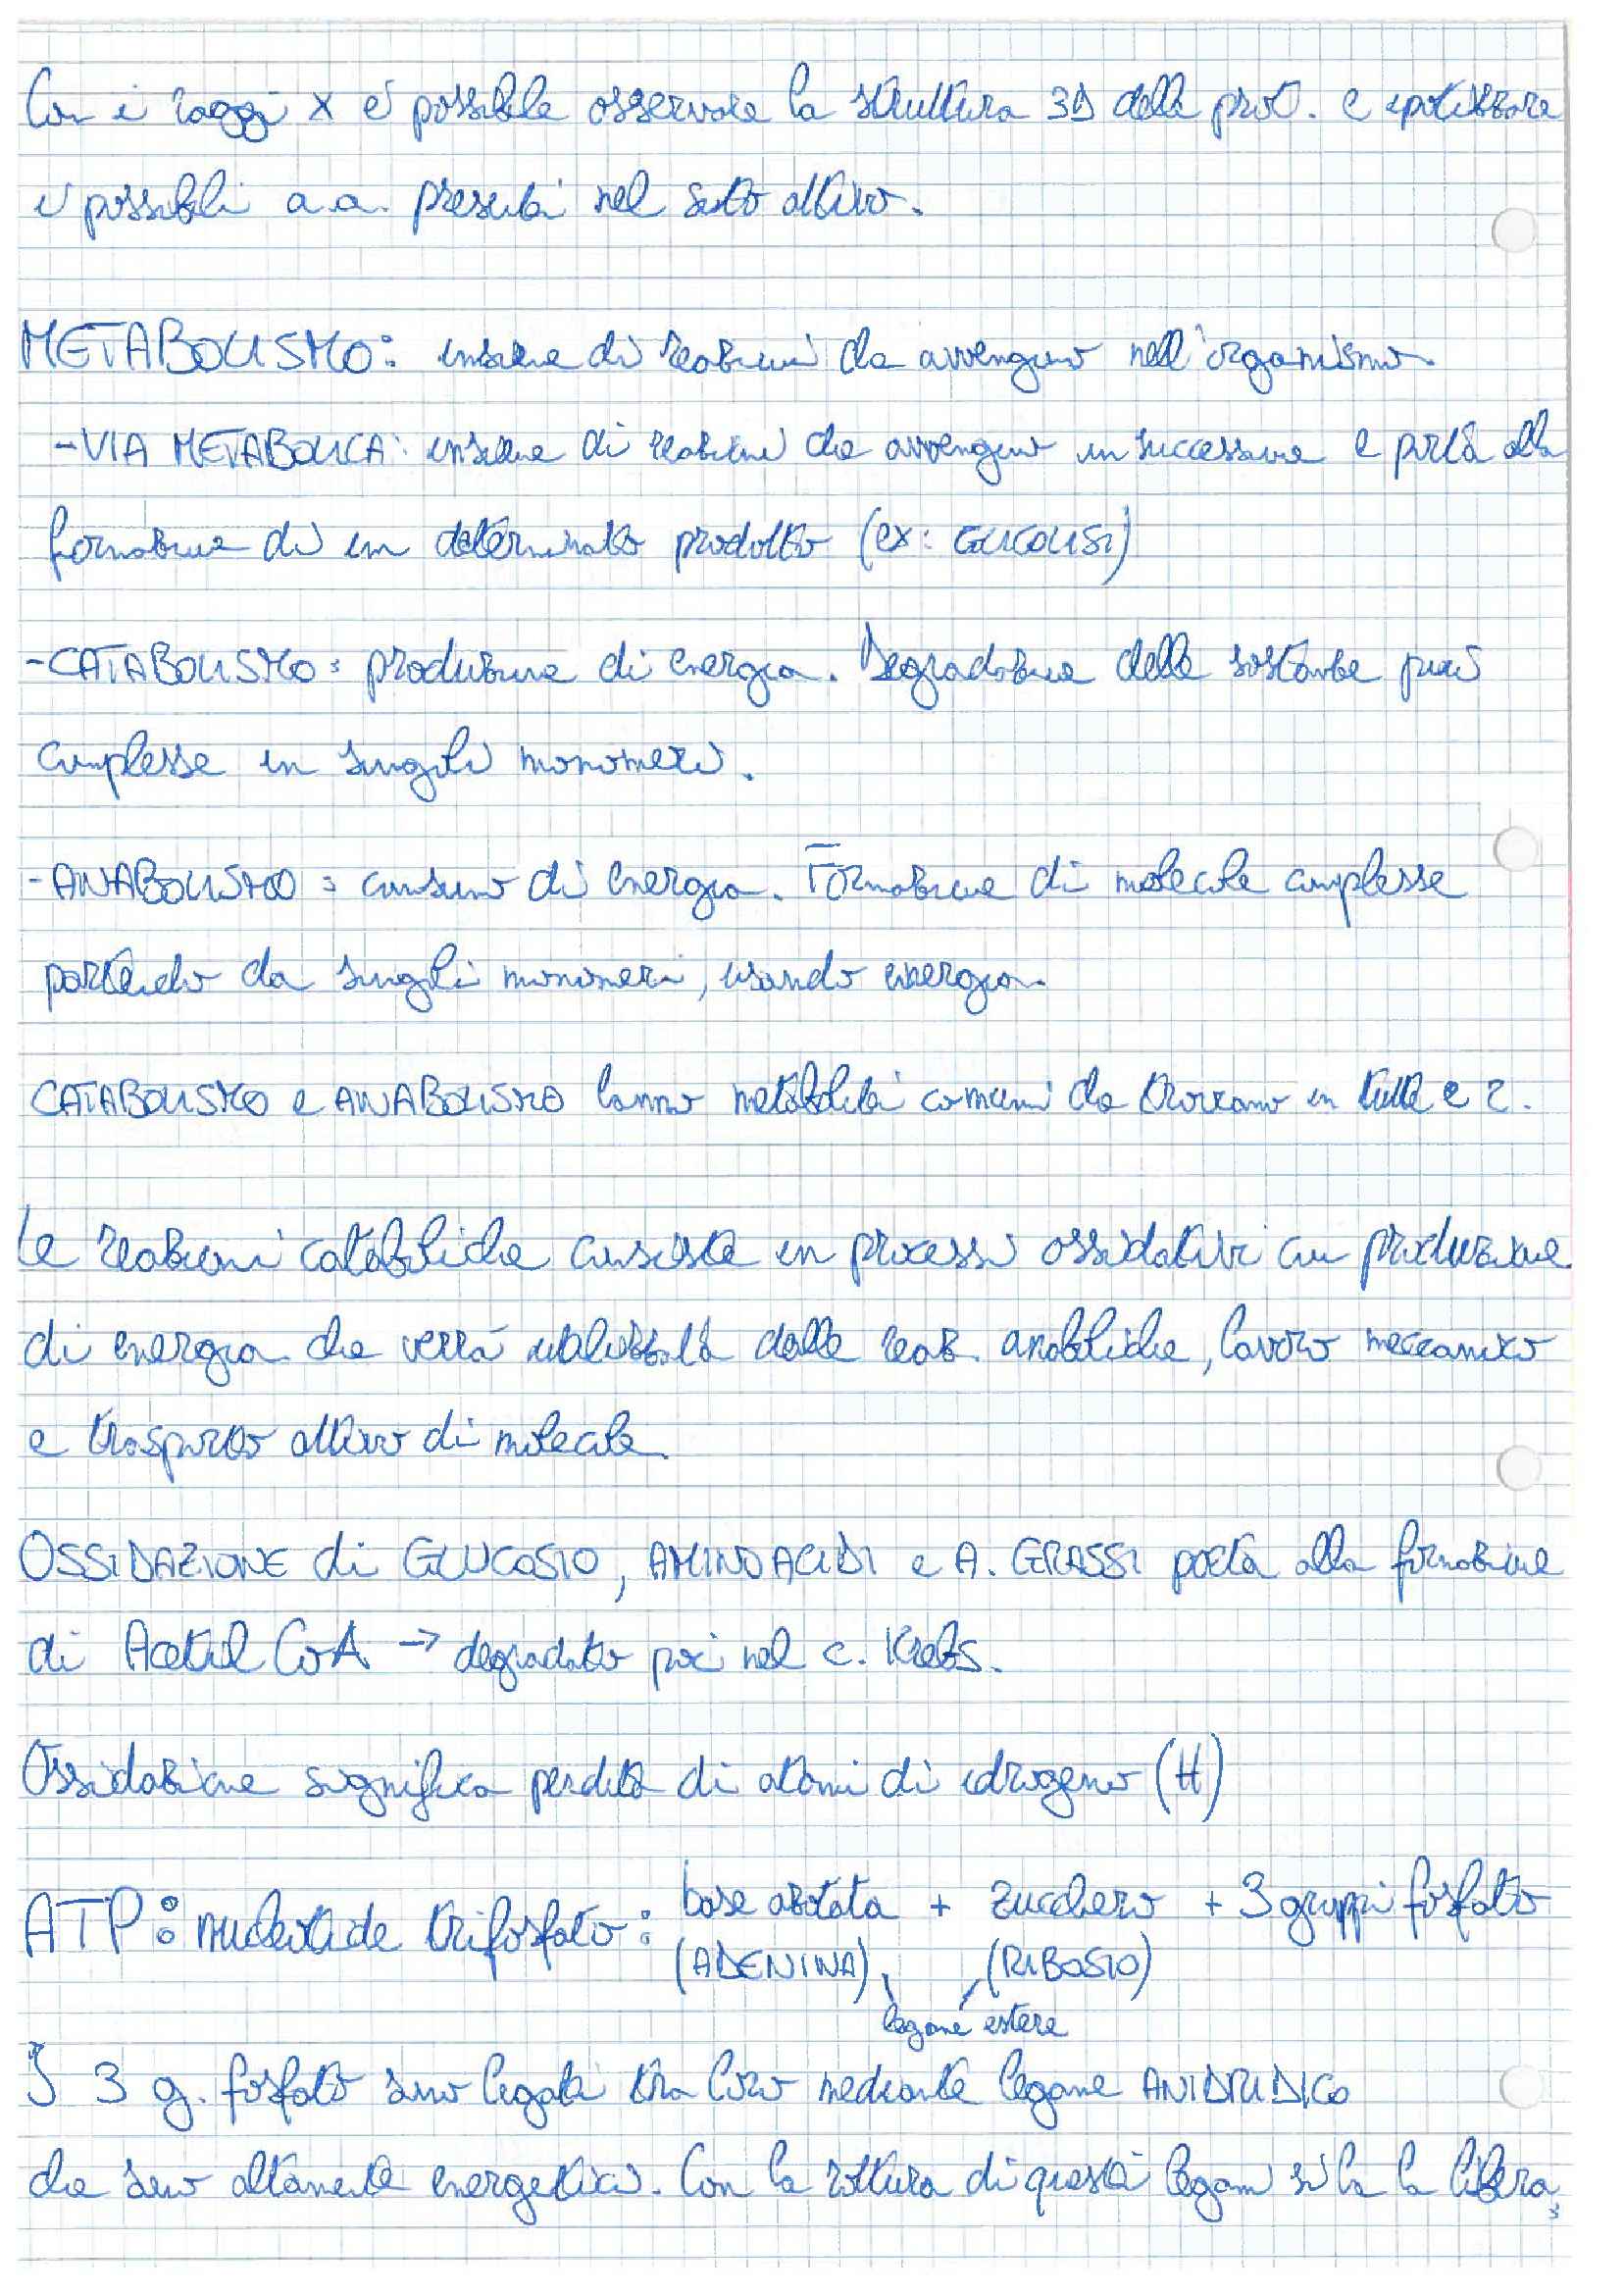 Con i raggi X è possibile osservare la struttura 3D delle prot. e ipotizzare
i possibili a.a. presenti nel sito attivo.
METABOLISMO: insieme di reazioni che avvengono nell'organismo.
-VIA METABOLICA: insieme di reazioni che avvengono in successione e porta alla
formazione di un determinato prodotto (ex: GLICOLISI)
-CATABOLISMO: produzione di energia. Degradazione delle sostanze più
complesse in singoli monomeri.
-ANABOLISMO: consumo di energia. Formazione di molecole complesse
partendo da singoli monomeri, usando energia.
CATABOLISMO e ANABOLISMO hanno metaboliti comuni che troviamo in tutti e 2.
Le reazioni cataboliche consiste in processi ossidativi con produzione
di energia che verrà utilizzata dalle reaz. anaboliche, lavoro meccanico
e trasporto attivo di molecole.
OSSIDAZIONE di GLUCOSIO, AMINOACIDI e A. GRASSI porta alla formazione
di Acetil CoA → degradato poi nel c. Krebs.
Ossidazione significa perdita di atomi di idrogeno (H)
ATP: nucleotide trifosfato: base azotata + zucchero + 3 gruppi fosfato
(ADENINA) (RIBOSIO)
legame estere
I 3 g. fosfato sono legati tra loro mediante legame ANIDRIDICO
che sono altamente energetici. Con la rottura di questi legami si ha la libera
3